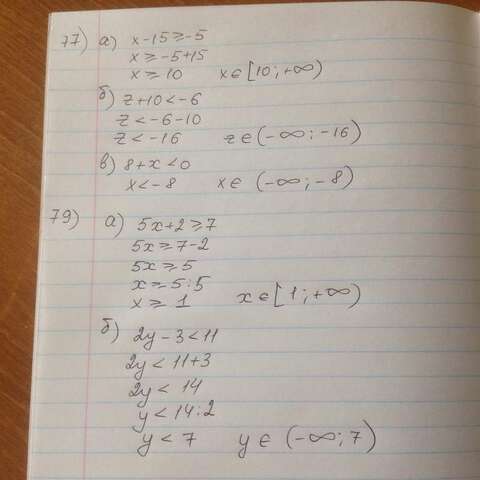 77) а) x-15≥-5
x≥-5+15
x≥10 x∈[10;+∞)
б) z+10<-6
z<-6-10
z<-16 z∈(-∞;-16)
в) 8+x<0
x<-8 x∈(-∞;-8)
79) а) 5x+2≥7
5x≥7-2
5x≥5
x≥5:5
x≥1 x∈[1;+∞)
б) 2y-3<11
2y<11+3
2y<14
y<14:2
y<7 y∈(-∞;7)